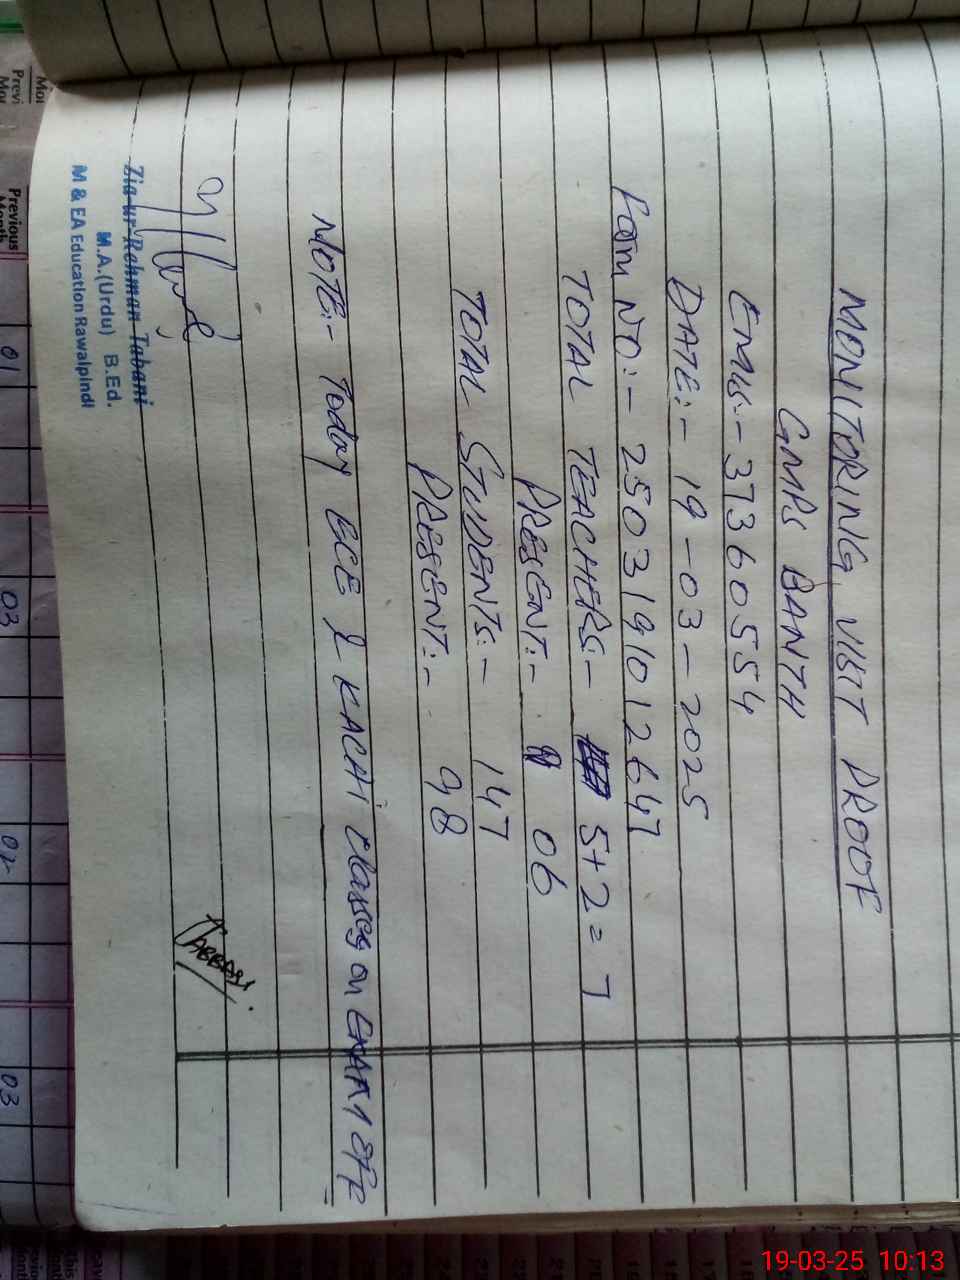 MONITORING VISIT PROOF
GMPS BANTH
EMIS:- 37360554
DATE:- 19-03-2025
FORM NO:- 2503191012647
TOTAL TEACHERS:- 5+2= 7
PRESENT:- 06
TOTAL STUDENTS:- 147
PRESENT:- 98
NOTE:- Today ECE & KACHI classes on EXAM OFF
ABBASI.
Zia-ur-Rehman Tabani
M.A.(Urdu) B.Ed.
M & EA Education Rawalpindi
Previous
Month
01
03
02
03
19-03-25 10:13